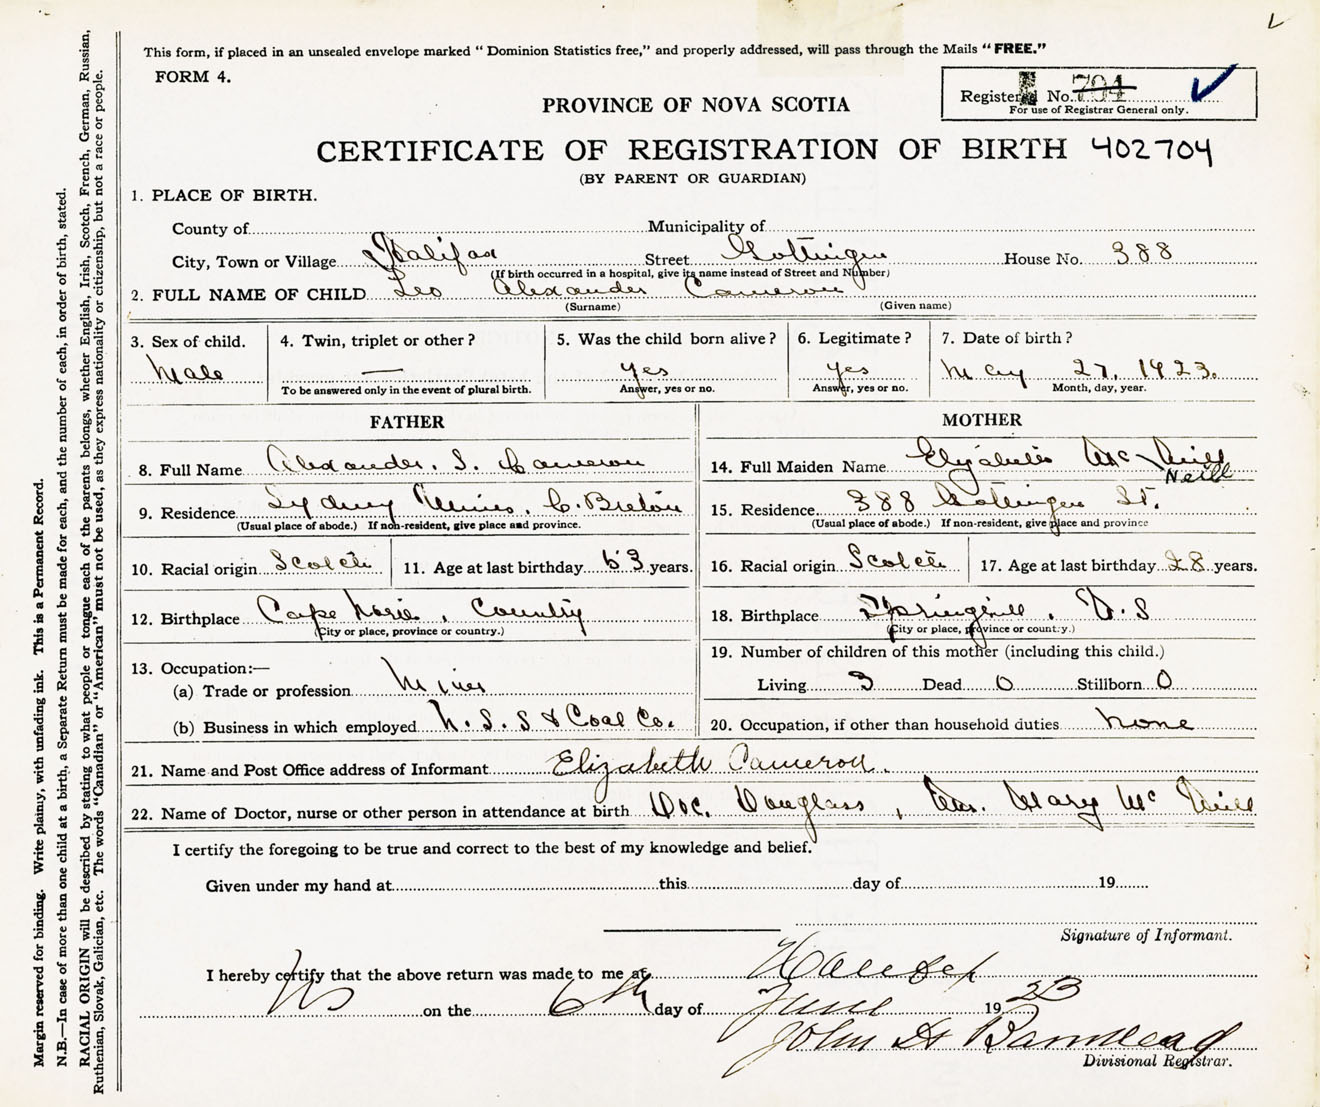 This form, if placed in an unsealed envelope marked " Dominion Statistics free," and properly addressed, will pass through the Mails " FREE."
FORM 4.
Registered No. 704
For use of Registrar General only.
PROVINCE OF NOVA SCOTIA
CERTIFICATE OF REGISTRATION OF BIRTH 402704
(BY PARENT OR GUARDIAN)
1. PLACE OF BIRTH.
County of Municipality of
City, Town or Village Halifax Street Gottingen House No. 388
(If birth occurred in a hospital, give its name instead of Street and Number)
2. FULL NAME OF CHILD Leo Alexander Cameron
(Surname) (Given name)
3. Sex of child. 4. Twin, triplet or other ? 5. Was the child born alive ? 6. Legitimate ? 7. Date of birth ?
Male — yes yes May 27, 1923.
To be answered only in the event of plural birth. Answer, yes or no. Answer, yes or no. Month, day, year.
FATHER
8. Full Name Alexander. S. Cameron
9. Residence Sydney Mines, C. Breton
(Usual place of abode.) If non-resident, give place and province.
10. Racial origin Scotch 11. Age at last birthday 63 years.
12. Birthplace Cape , Country
(City or place, province or country.)
13. Occupation:—
(a) Trade or profession Miner
(b) Business in which employed N. S. S & Coal Co.
MOTHER
14. Full Maiden Name Elizabeth Mc Neill
Neill
15. Residence 388 Gottingen St.
(Usual place of abode.) If non-resident, give place and province
16. Racial origin Scotch 17. Age at last birthday 28 years.
18. Birthplace Springhill, N. S
(City or place, province or country.)
19. Number of children of this mother (including this child.)
Living 3 Dead 0 Stillborn 0
20. Occupation, if other than household duties none
21. Name and Post Office address of Informant Elizabeth Cameron.
22. Name of Doctor, nurse or other person in attendance at birth Doc. Douglass, Mary Mc Neill
I certify the foregoing to be true and correct to the best of my knowledge and belief.
Given under my hand at this day of 19
Signature of Informant.
I hereby certify that the above return was made to me at Halifax
NS on the 6th day of June 1923
John H Barnstead
Divisional Registrar.
Margin reserved for binding. Write plainly, with unfading ink. This is a Permanent Record.
N.B.—In case of more than one child at a birth, a Separate Return must be made for each, and the number of each, in order of birth, stated.
RACIAL ORIGIN will be described by stating to what people or tongue each of the parents belongs, whether English, Irish, Scotch, French, German, Russian,
Ruthenian, Slovak, Galician, etc. The words "Canadian" or "American" must not be used, as they express nationality or citizenship, but not a race or people.